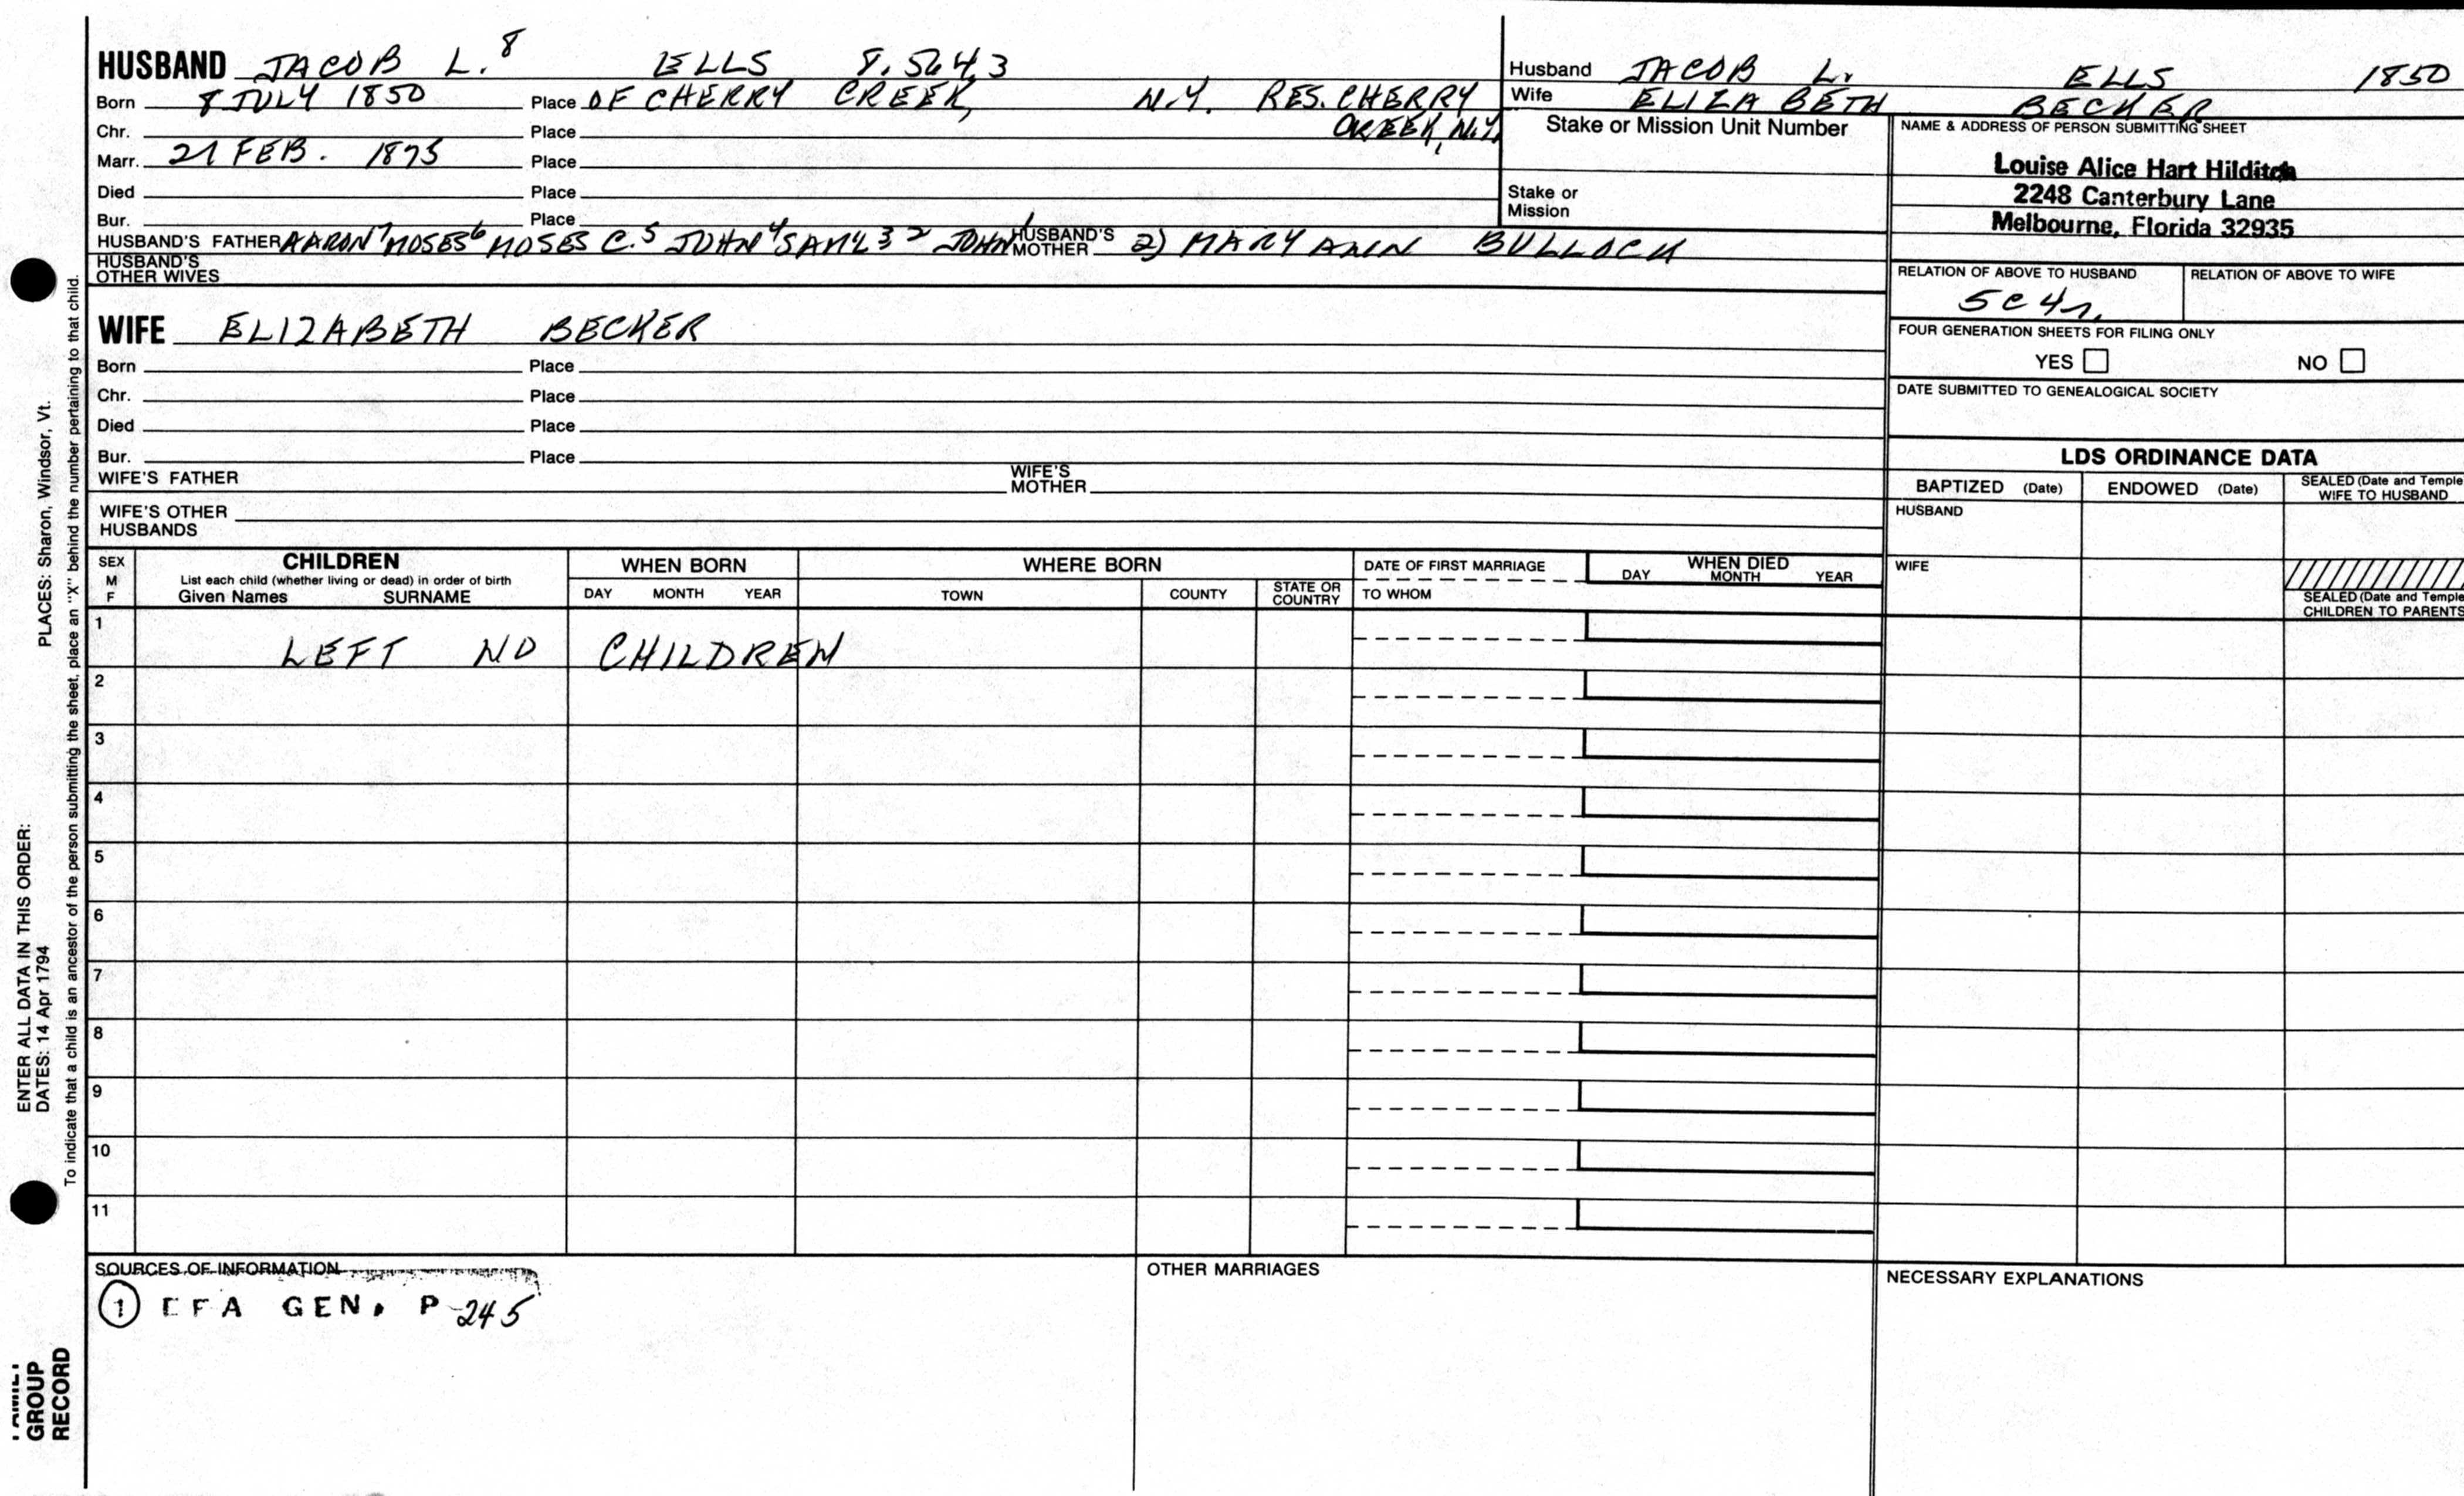 HUSBAND JACOB L.⁸ ELLS 8.5643
Born 8 JULY 1850 Place OF CHERRY CREEK, N.Y. RES. CHERRY
Chr. Place CREEK, N.Y.
Marr. 21 FEB. 1875 Place
Died Place
Bur. Place
HUSBAND'S FATHER AARON⁷ MOSES⁶ MOSES C.⁵ JOHN⁴ SAM'L³ ² JOHN¹ HUSBAND'S MOTHER 2) MARY ANN BULLOCK
HUSBAND'S OTHER WIVES
Husband JACOB L. ELLS 1850
Wife ELIZABETH BECKER
Stake or Mission Unit Number
Stake or Mission
NAME & ADDRESS OF PERSON SUBMITTING SHEET
Louise Alice Hart Hilditch
2248 Canterbury Lane
Melbourne, Florida 32935
RELATION OF ABOVE TO HUSBAND RELATION OF ABOVE TO WIFE
5c4r.
FOUR GENERATION SHEETS FOR FILING ONLY
YES NO
DATE SUBMITTED TO GENEALOGICAL SOCIETY
WIFE ELIZABETH BECKER
Born Place
Chr. Place
Died Place
Bur. Place
WIFE'S FATHER WIFE'S MOTHER
WIFE'S OTHER HUSBANDS
LDS ORDINANCE DATA
BAPTIZED (Date) ENDOWED (Date) SEALED (Date and Temple
WIFE TO HUSBAND
HUSBAND
WIFE
SEALED (Date and Temple
CHILDREN TO PARENTS
SEX M F CHILDREN WHEN BORN WHERE BORN DATE OF FIRST MARRIAGE WHEN DIED
List each child (whether living or dead) in order of birth
Given Names SURNAME DAY MONTH YEAR TOWN COUNTY STATE OR COUNTRY TO WHOM DAY MONTH YEAR
1 LEFT NO CHILDREN
2
3
4
5
6
7
8
9
10
11
SOURCES OF INFORMATION OTHER MARRIAGES NECESSARY EXPLANATIONS
① EFA GEN. P 245
ENTER ALL DATA IN THIS ORDER:
DATES: 14 Apr 1794 PLACES: Sharon, Windsor, Vt.
To indicate that a child is an ancestor of the person submitting the sheet, place an "X" behind the number pertaining to that child.
GROUP
RECORD